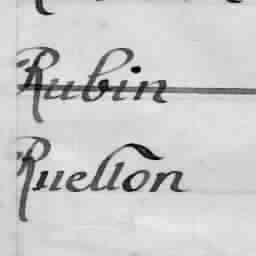 Rubin
Ruellon